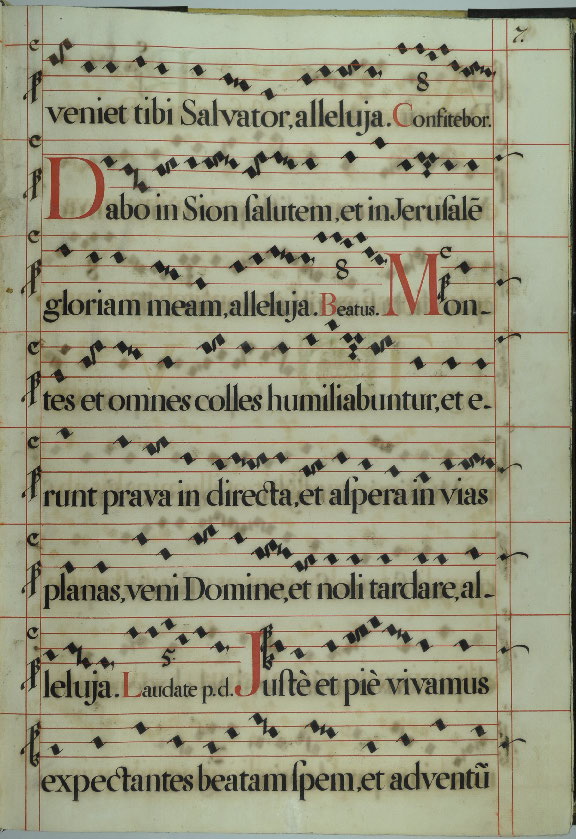 7.
8
veniet tibi Salvator, alleluja. Confitebor.
Dabo in Sion ſalutem, et in Jeruſalē
8
gloriam meam, alleluja. Beatus. Mon-
tes et omnes colles humiliabuntur, et e-
runt prava in directa, et aſpera in vias
planas, veni Domine, et noli tardare, al-
5.
leluja. Laudate p.d. Juſtè et piè vivamus
expectantes beatam ſpem, et adventū